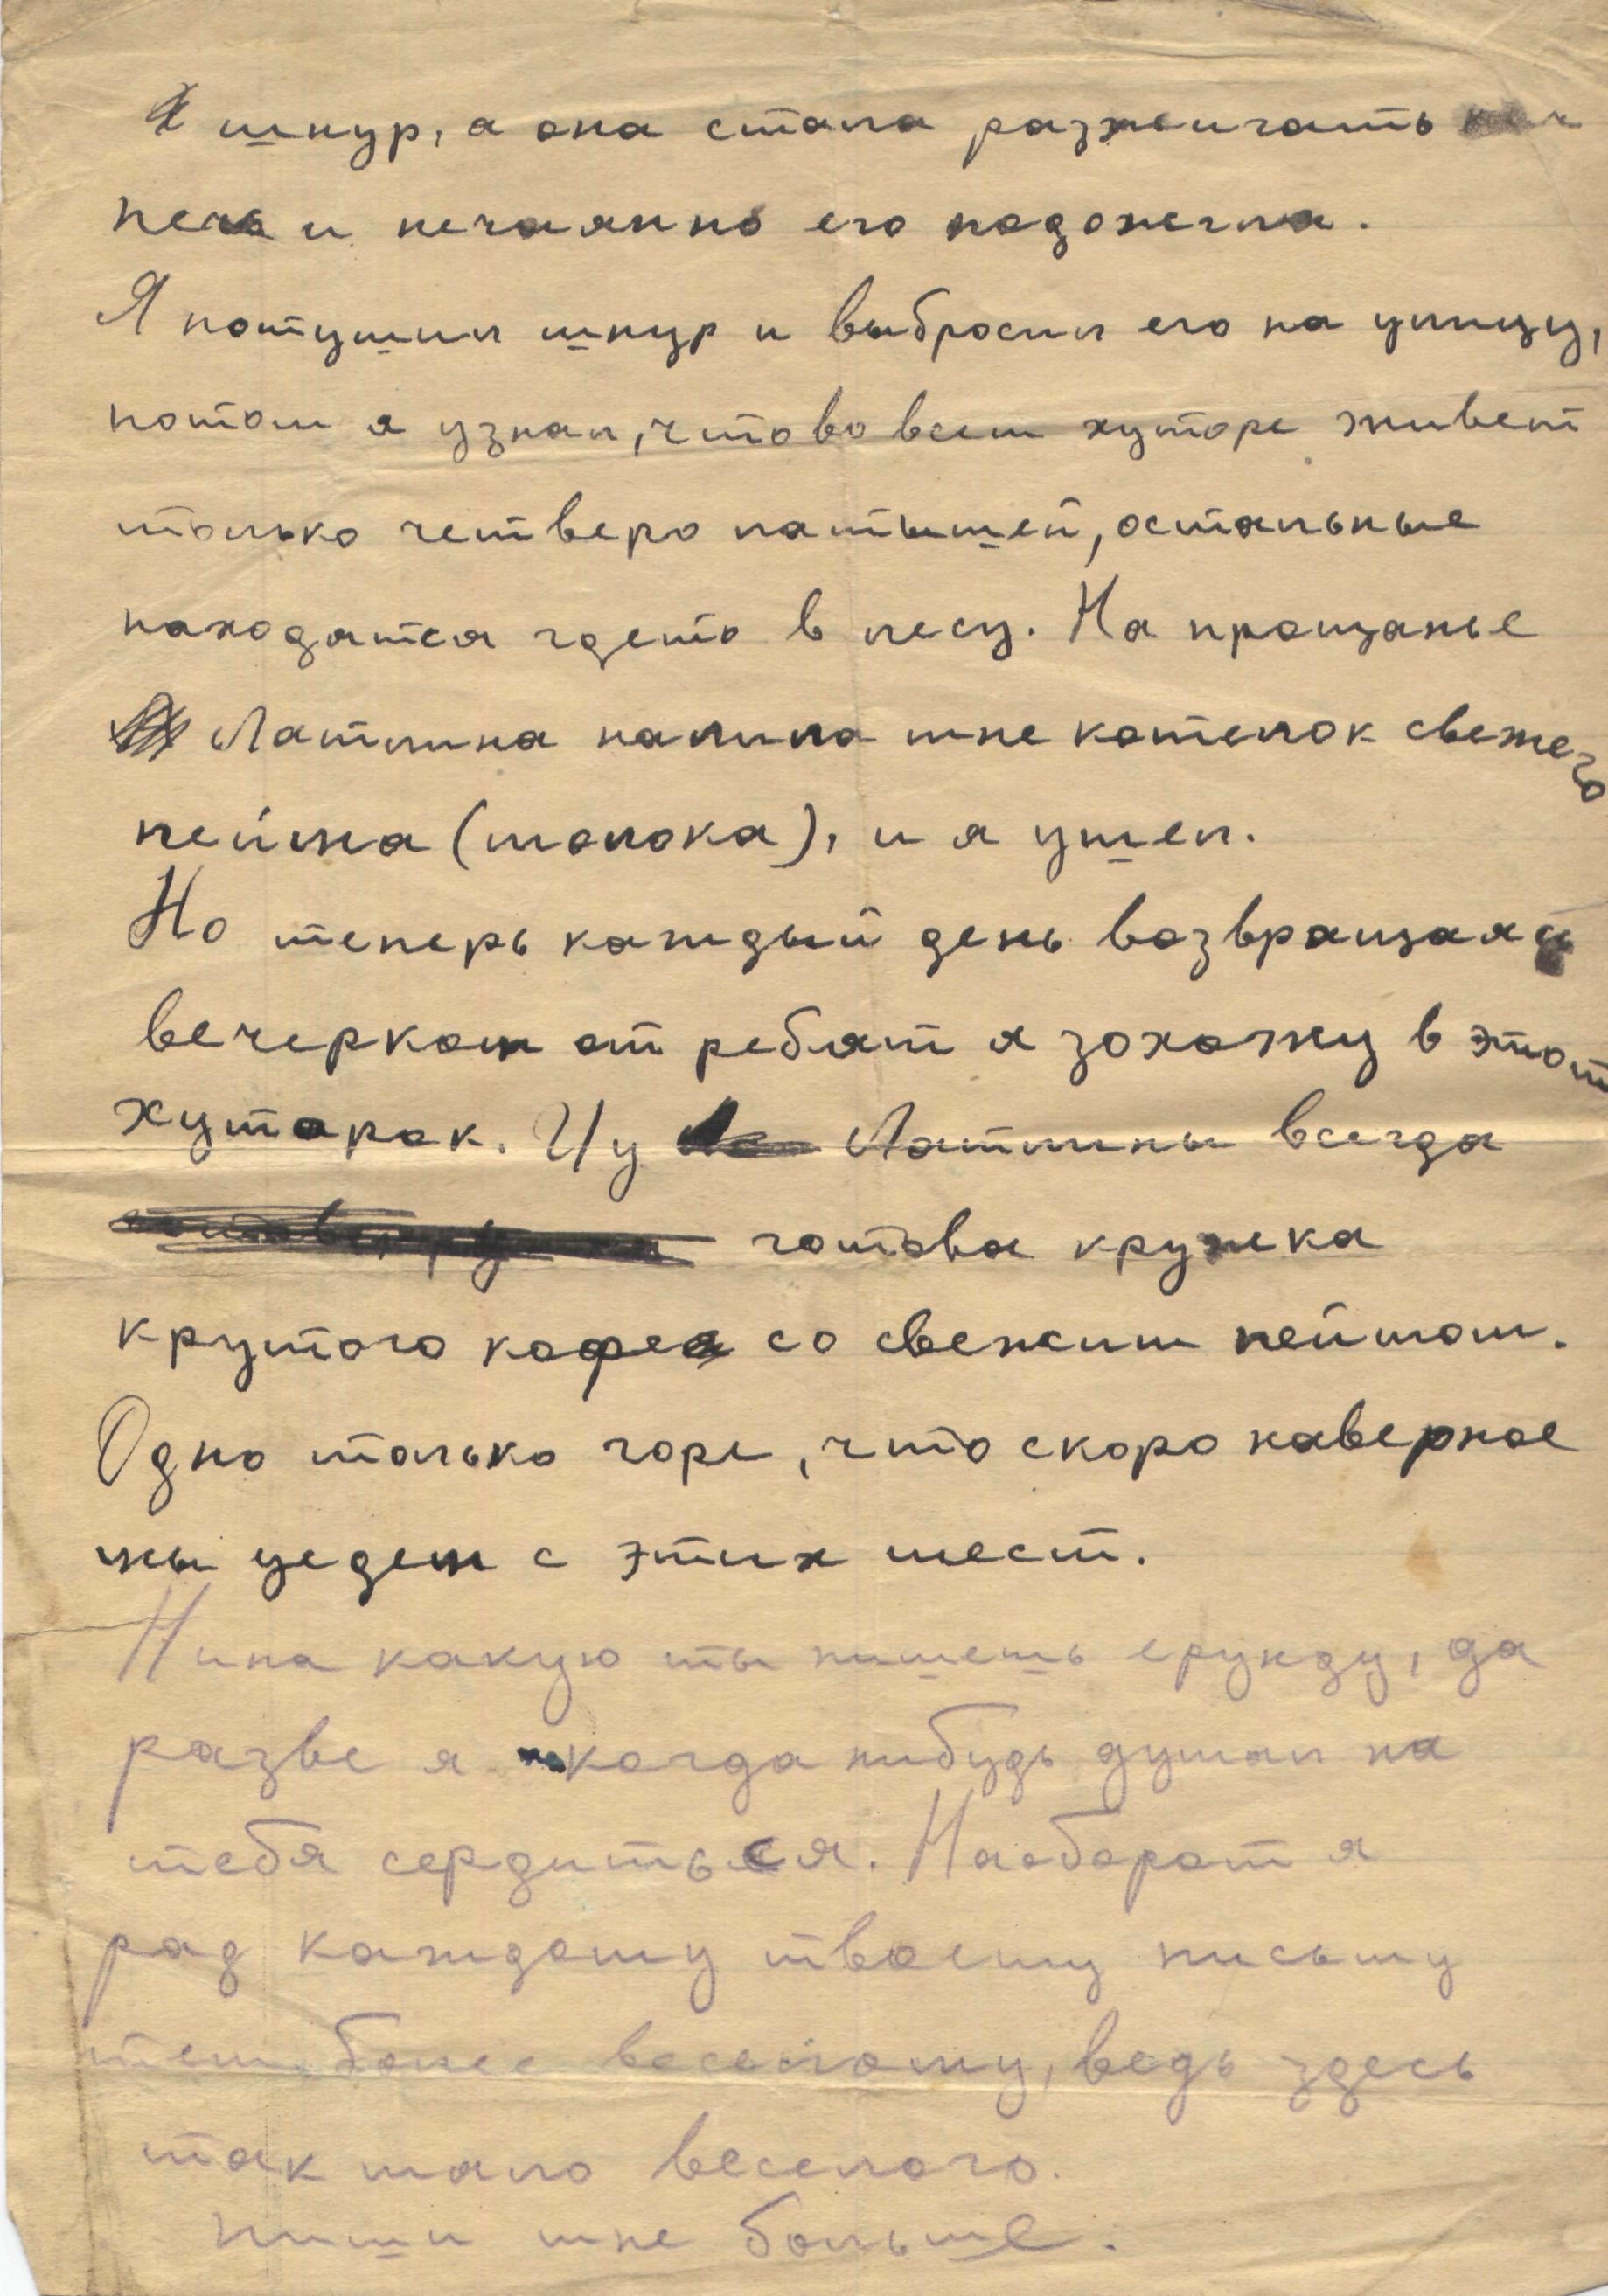 Я шнур, а она стала разжигать
печь и нечаянно его подожгла.
Я потушил шнур и выбросил его на улицу,
потом я узнал, что во всем хуторе живет
только четверо латышей, остальные
находятся гдето в лесу. На прощанье
Латшина налила мне котелок свежего
пейма (молока), и я ушел.
Но теперь каждый день возвращаясь
вечерком от ребят я захожу в этот
хуторок. И у Латшины всегда
готова кружка
крутого кофея со свежим пеймом.
Одно только горе, что скоро наверное
мы уедем с этих мест.
Нина какую ты пишешь ерунду, да
разве я когда нибудь думал на
тебя сердиться. Наоборот я
рад каждому твоему письму
тем более веселому, ведь здесь
так мало веселого.
Пиши мне больше.